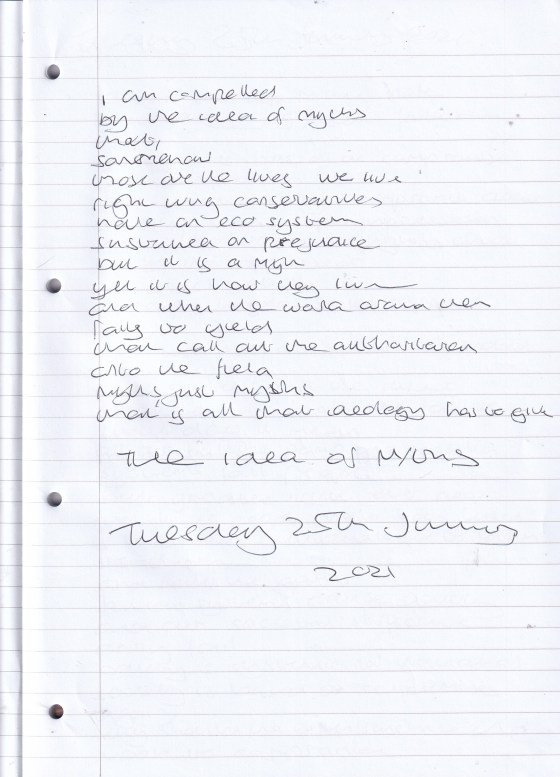 i am compelled
by the idea of myths
that,
somehow
those are the lives we live
right wing conservatives
have an eco system
sustained on prejudice
but it is a myth
yet it is how they live
and when the world around them
fails to yield
they call out the authoritarian
onto the field
myths, just myths
that is all that ideology has to give
The idea of Myths
Tuesday 25th January
2021